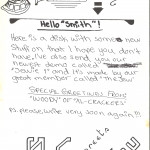 Hello "Smith"!
Here is a disk with some new
stuff on that I hope you don't
have. I've also send you our
newest demo called
and it's made by our
great member called "Jow"
SPECIAL GREETINGS FROM
"WOODY" OF "AL-CRACKERS"
Ps. please, write very soon again!!!